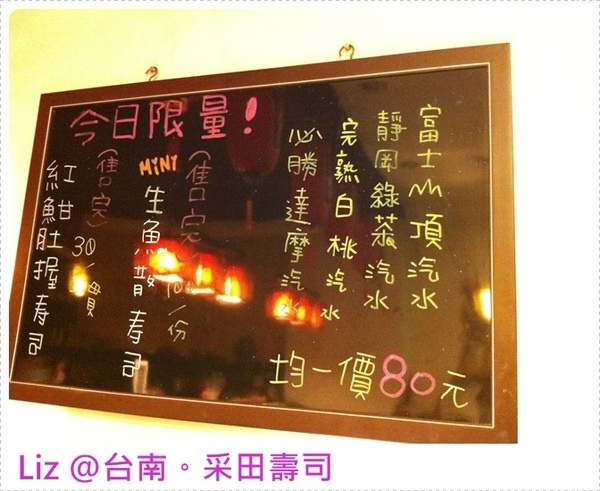 今日限量!
富士山頂汽水
靜岡綠茶汽水
完熟白桃汽水
必勝達摩汽水
均一價80元
(售完) /份
MINI 生魚散寿司
(售完) 30/貫
紅魽肚握寿司
Liz @台南。采田壽司